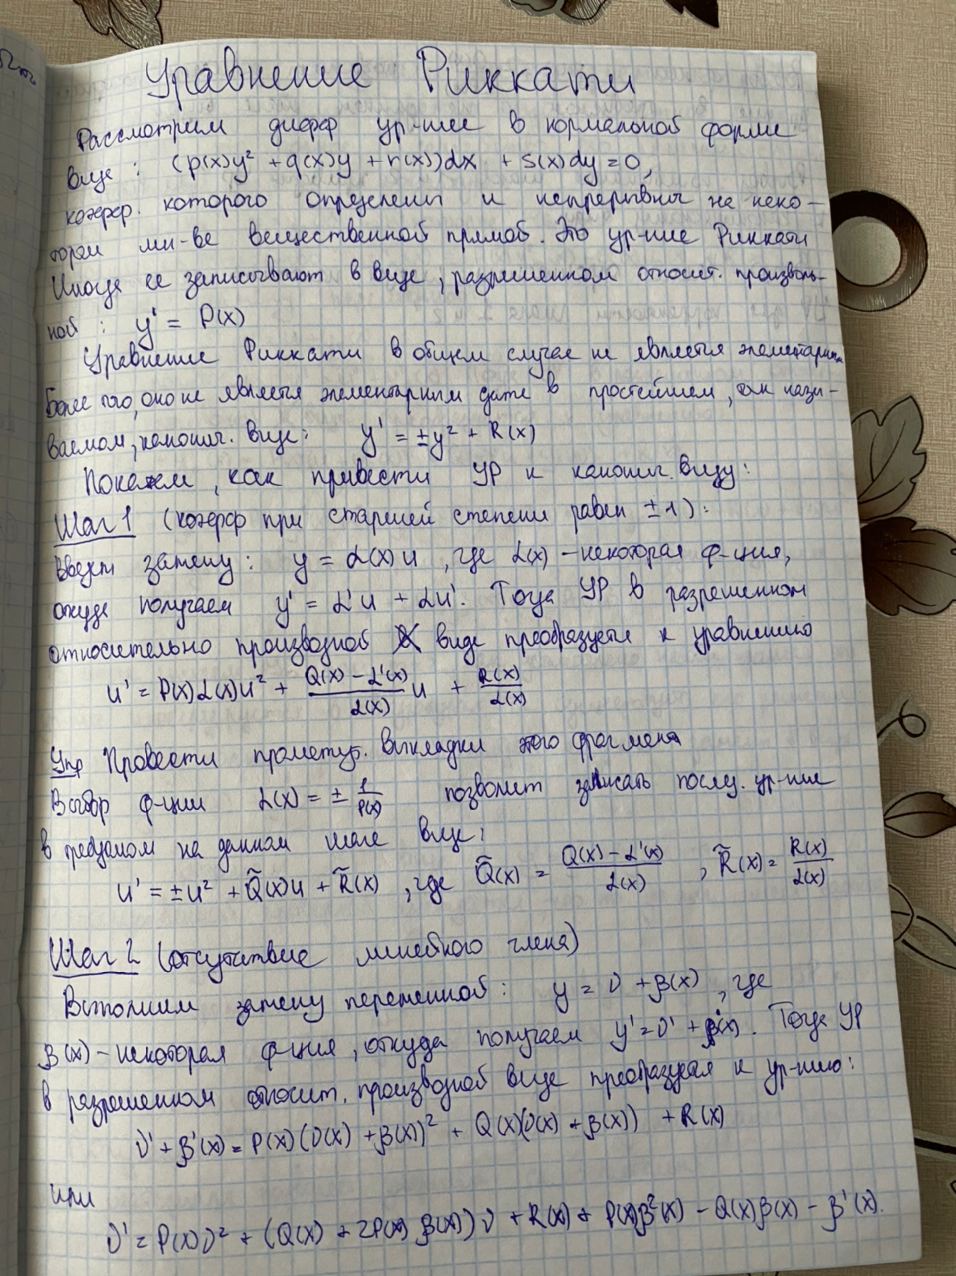 Уравнение Риккати
Рассмотрим дифф ур-ние в нормальной форме
виде: (p(x)y² + q(x)y + r(x))dx + s(x)dy = 0,
коэфф. которого определены и непрерывны на неко-
тором мн-ве вещественной прямой. Это ур-ние Риккати
Иногда ее записывают в виде, разрешенном относит. производ-
ной: y' = P(x)
Уравнение Риккати в общем случае не является элементарным
Более того, оно не является элементарным даже в простейшем, так назы-
ваемом, канонич. виде: y' = ±y² + R(x)
Покажем, как привести УР к канонич. виду:
Шаг 1 (коэфф при старшей степени равен ±1):
Введем замену: y = α(x)u, где α(x) - некоторая ф-ция,
откуда получаем y' = α'u + αu'. Тогда УР в разрешенном
относительно производной виде преобразуется к уравнению
u' = P(x)α(x)u² + (Q(x) - α'(x))/α(x) u + R(x)/α(x)
Упр Провести промежут. выкладки этого фрагмента
Выбор ф-ции α(x) = ± 1/P(x) позволит записать послед. ур-ние
в требуемом на данном шаге виде:
u' = ±u² + Q̃(x)u + R̃(x), где Q̃(x) = (Q(x) - α'(x))/α(x), R̃(x) = R(x)/α(x)
Шаг 2 (отсутствие линейного члена)
Выполним замену переменной: y = υ + β(x), где
β(x) - некоторая ф-ция, откуда получаем y' = υ' + β'(x). Тогда УР
в разрешенном относит. производной виде преобразуя к ур-нию:
υ' + β'(x) = P(x)(υ(x) + β(x))² + Q(x)(υ(x) + β(x)) + R(x)
или
υ' = P(x)υ² + (Q(x) + 2P(x)β(x))υ + R(x) + P(x)β²(x) - Q(x)β(x) - β'(x).